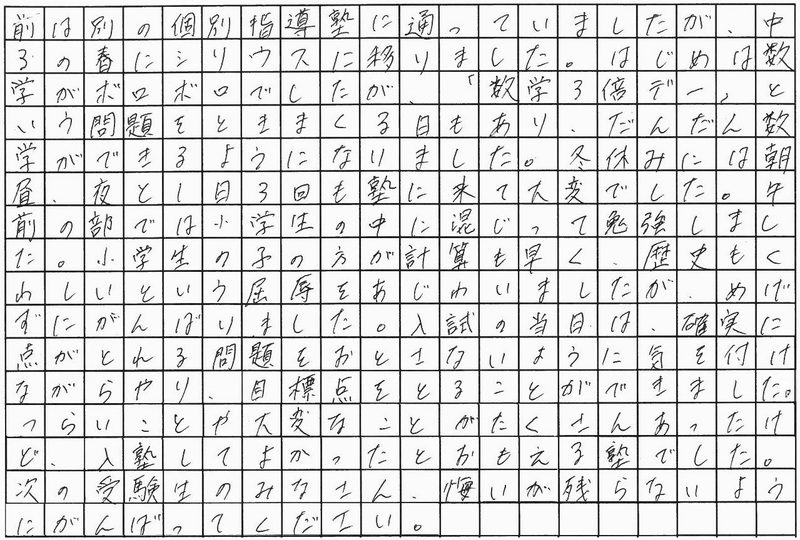 前は別の個別指導塾に通っていましたが、中
3の春にシリウスに移りました。はじめは数
学がボロボロでしたが、「数学3倍デー」と
いう問題をときまくる日もあり、だんだん数
学ができるようになりました。冬休みには朝
昼、夜と1日3回も塾に来て大変でした。午
前の部では小学生の中に混じって勉強しまし
た。小学生の子の方が計算も早く、歴史もく
わしいという屈辱をあじわいましたが、めげ
ずにがんばりました。入試の当日は、確実に
点がとれる問題をおとさないように気を付け
ながらやり、目標点をとることができました。
つらいことや大変なことがたくさんあったけ
ど、入塾してよかったとおもえる塾でした。
次の受験生のみなさん、悔いが残らないよう
にがんばってください。